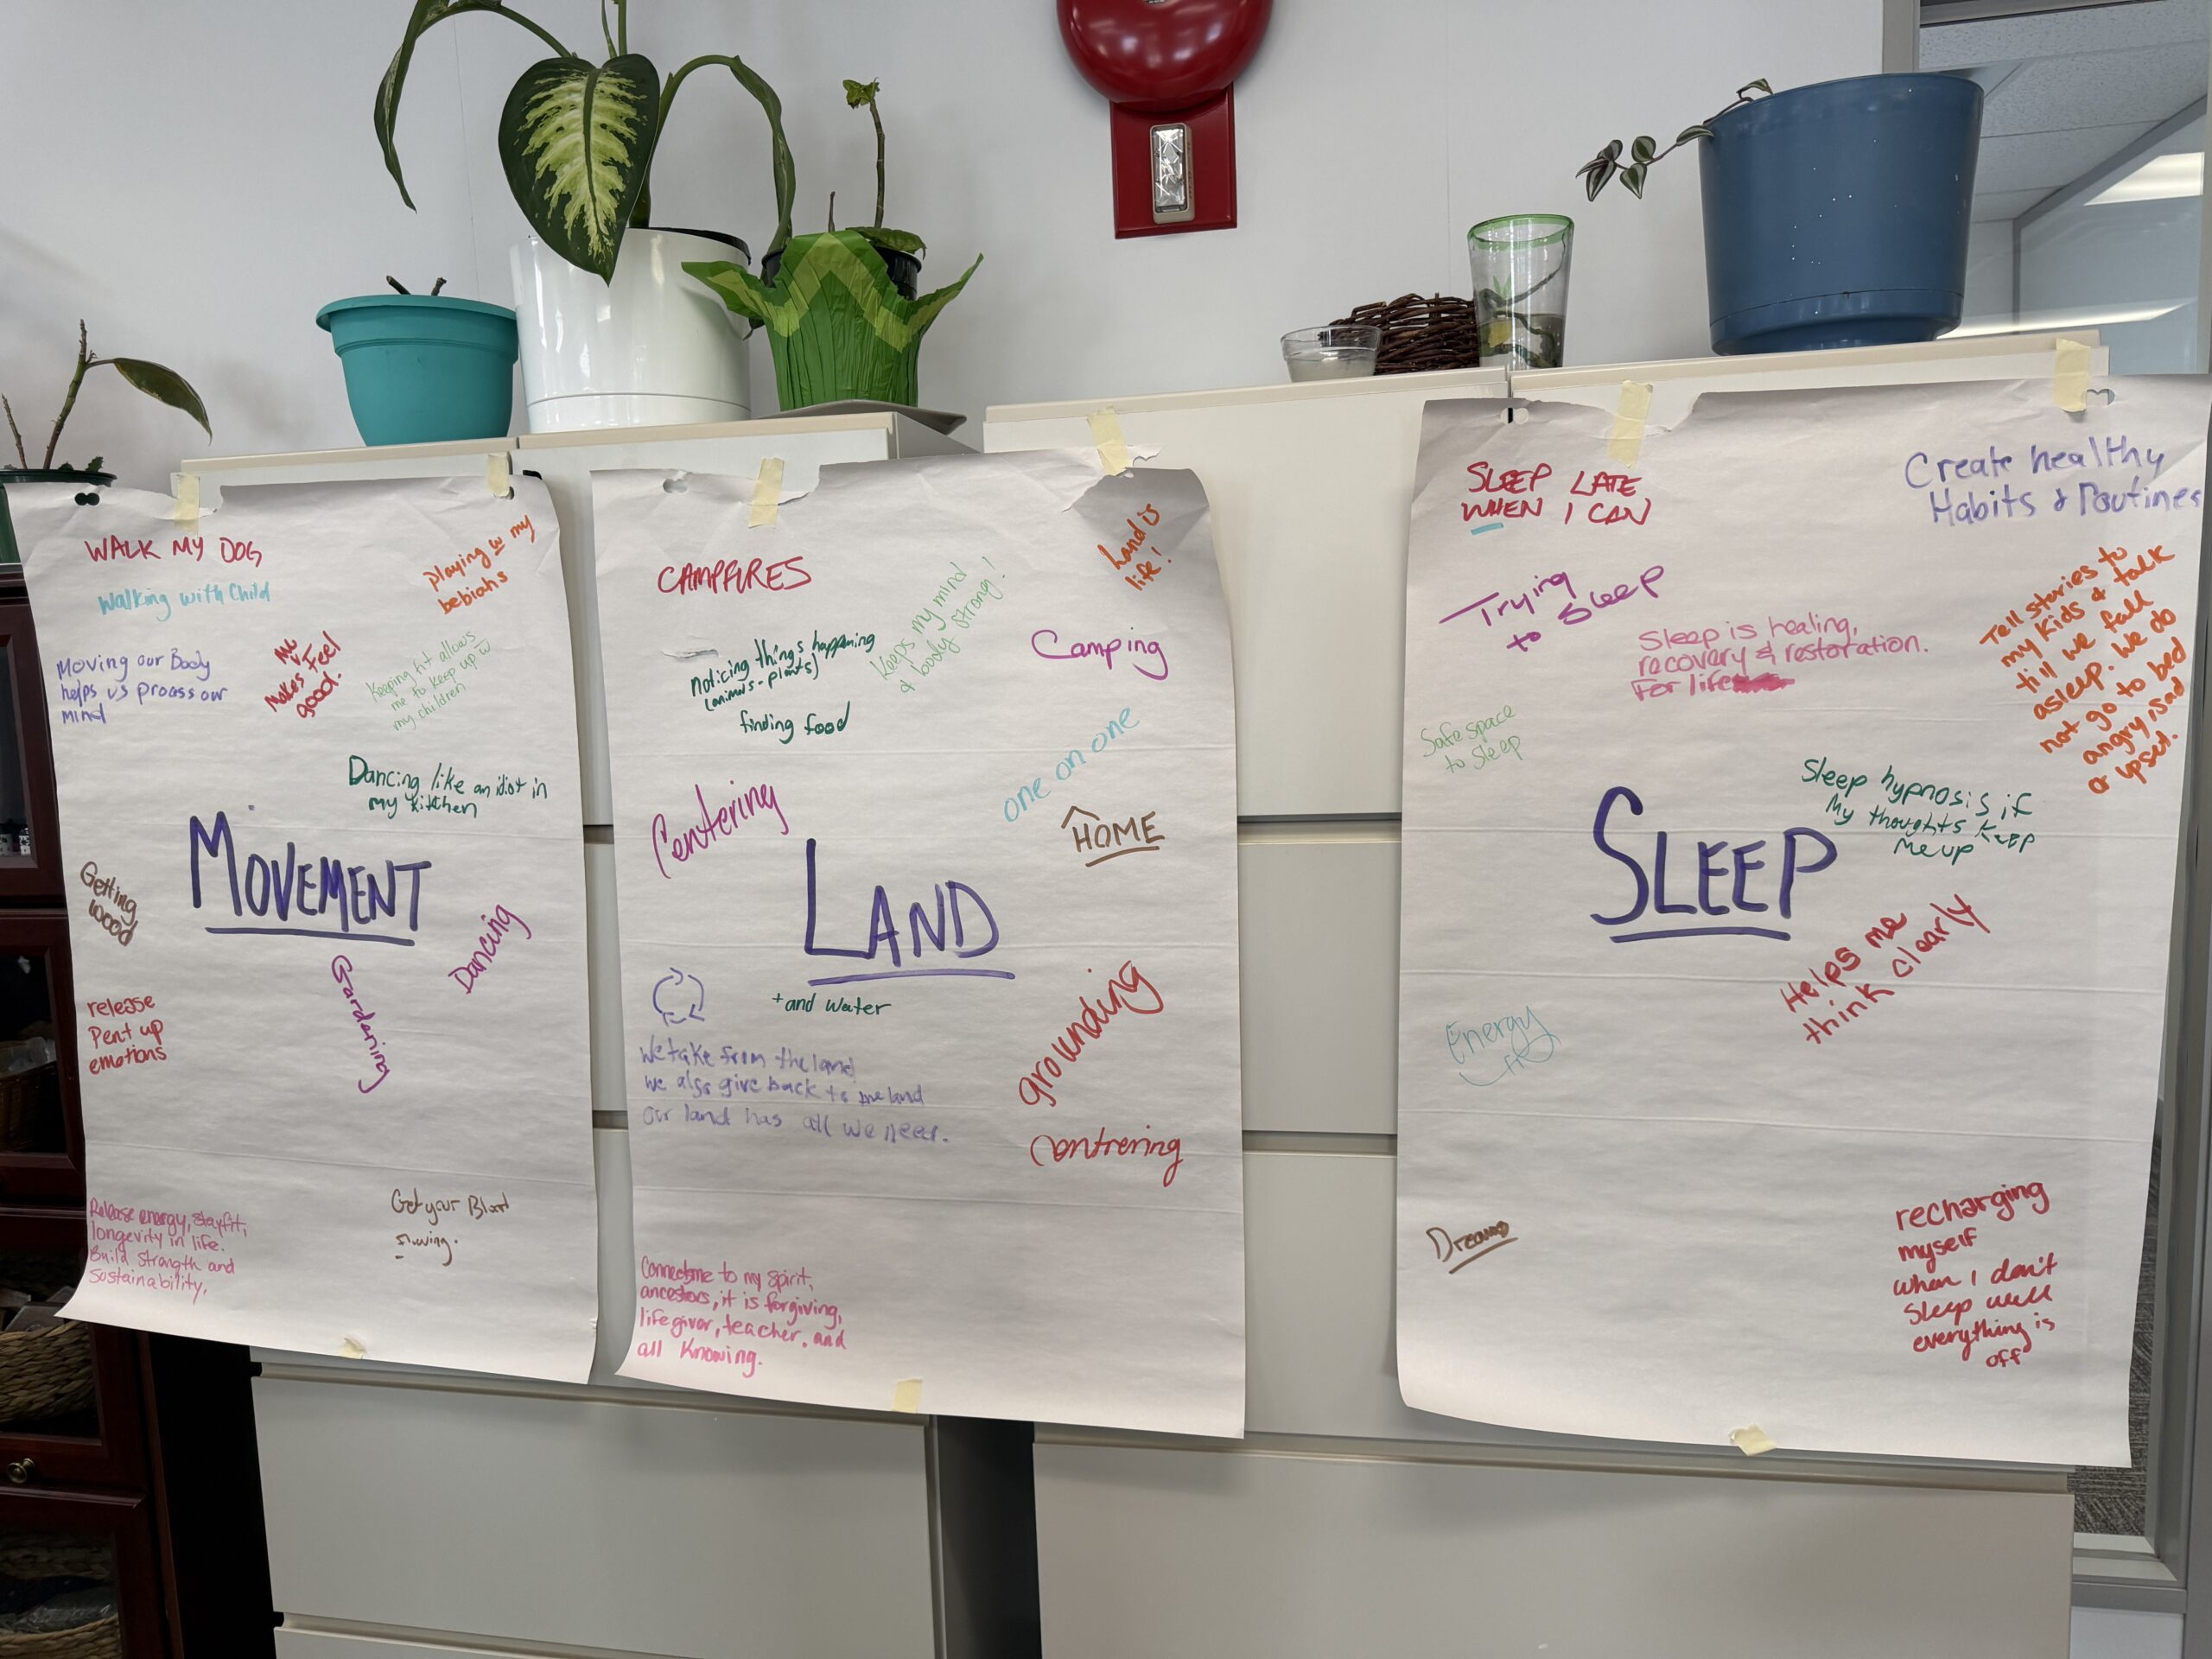 WALK MY DOG
Walking with Child
playing w my
bebiahs
Moving our Body
helps us proass our
mind
Makes Me Feel
good.
Keeping fit allows
me to keep up w
my children
Dancing like an idiot in
my kitchen
MOVEMENT
Getting
wood
Dancing
Gardening
release
Pent up
emotions
Get your Blood
flowing.
Release energy, stay fit,
longevity in life.
Build strength and
sustainability.
CAMPFIRES
Land is
life!
Keeps my mind
& body strong!
noticing things happening
(animals-plants)
finding food
Camping
one on one
Centering
HOME
LAND
+and water
grounding
We take from the land
we also give back to the land
Our land has all we need.
Contrering
Connects me to my spirit,
ancestors, it is forgiving,
life giver, teacher, and
all Knowing.
SLEEP LATE
WHEN I CAN
Create healthy
Habits & Routines
Trying
to Sleep
Sleep is healing,
recovery & restoration.
For life
Tell stories to
my kids & talk
till we fall
asleep. We do
not go to bed
angry, sad
or upset.
Safe space
to Sleep
Sleep hypnosis if
My thoughts KEEP
Me up
SLEEP
Helps me
think clearly
Energy
Dreams
recharging
myself
when I don't
Sleep well
everything is
off